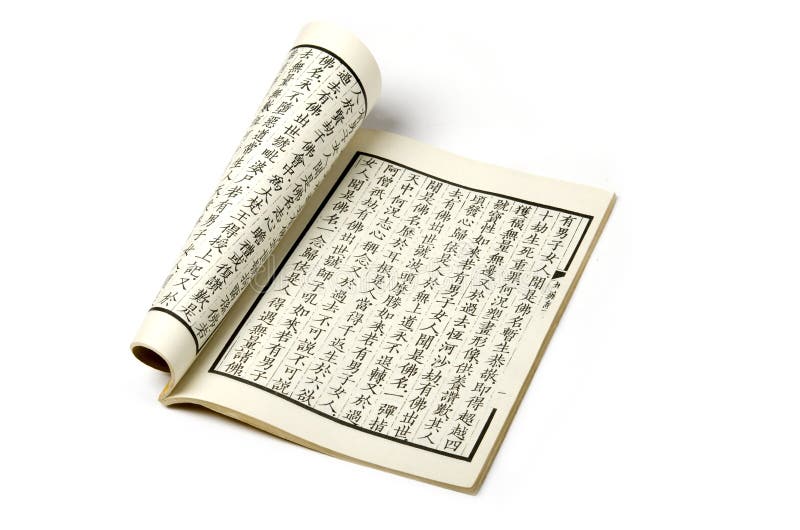 有男子女人聞是佛名暫生恭敬即得超越四
十劫生死重罪何況塑畫形像供養讚歎其人
獲福無量無邊又於過去恆河沙劫有佛出世
號寶性如來若有男子女人聞是佛名一彈指
頃發心歸依是人於無上道永不退轉又於過
去有佛出世號波頭摩勝如來若有男子女人
聞是佛名歷於耳根是人當得千返生於六欲
天中何況志心稱念又於過去不可說不可說
阿僧祇劫有佛出世號師子吼如來若有男子
女人聞是佛名一念歸依是人得遇無量諸佛
聞是佛名志心瞻禮或復讚歎是
人於賢劫千佛會中為大梵王得授上記又於
過去有佛出世號毗婆尸若有男子女
佛名永不墮惡道
去無量